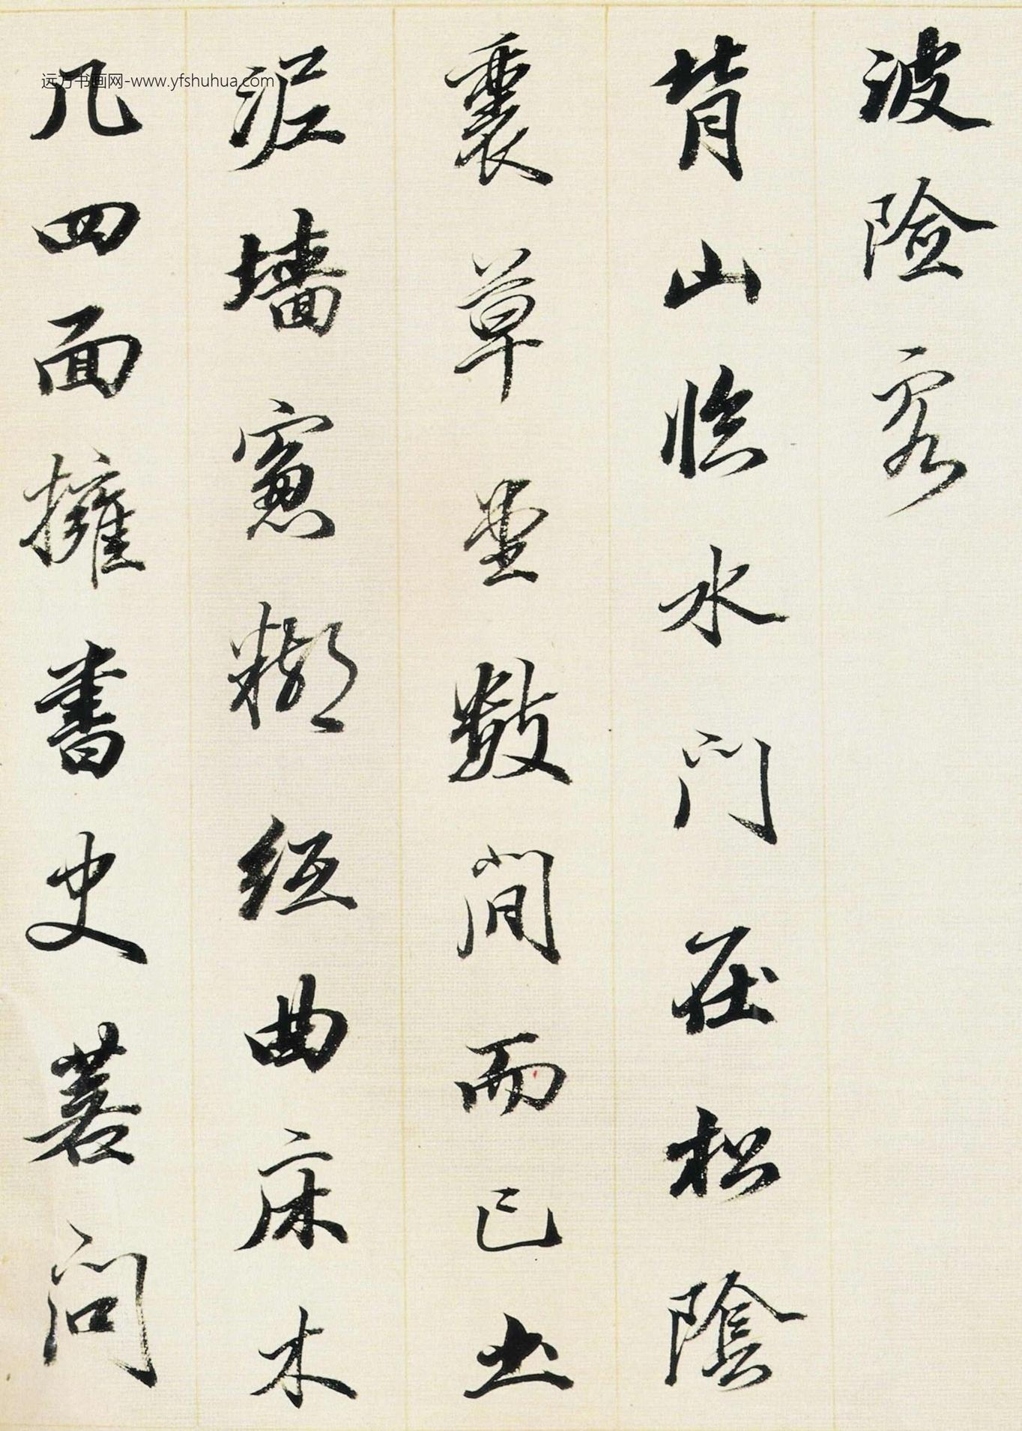 波險客
背山臨水門在松陰
裏草堂數間而已土
泥墻窓糊紙曲床木
几四面擁書史若問
远方书画网-www.yfshuhua.com